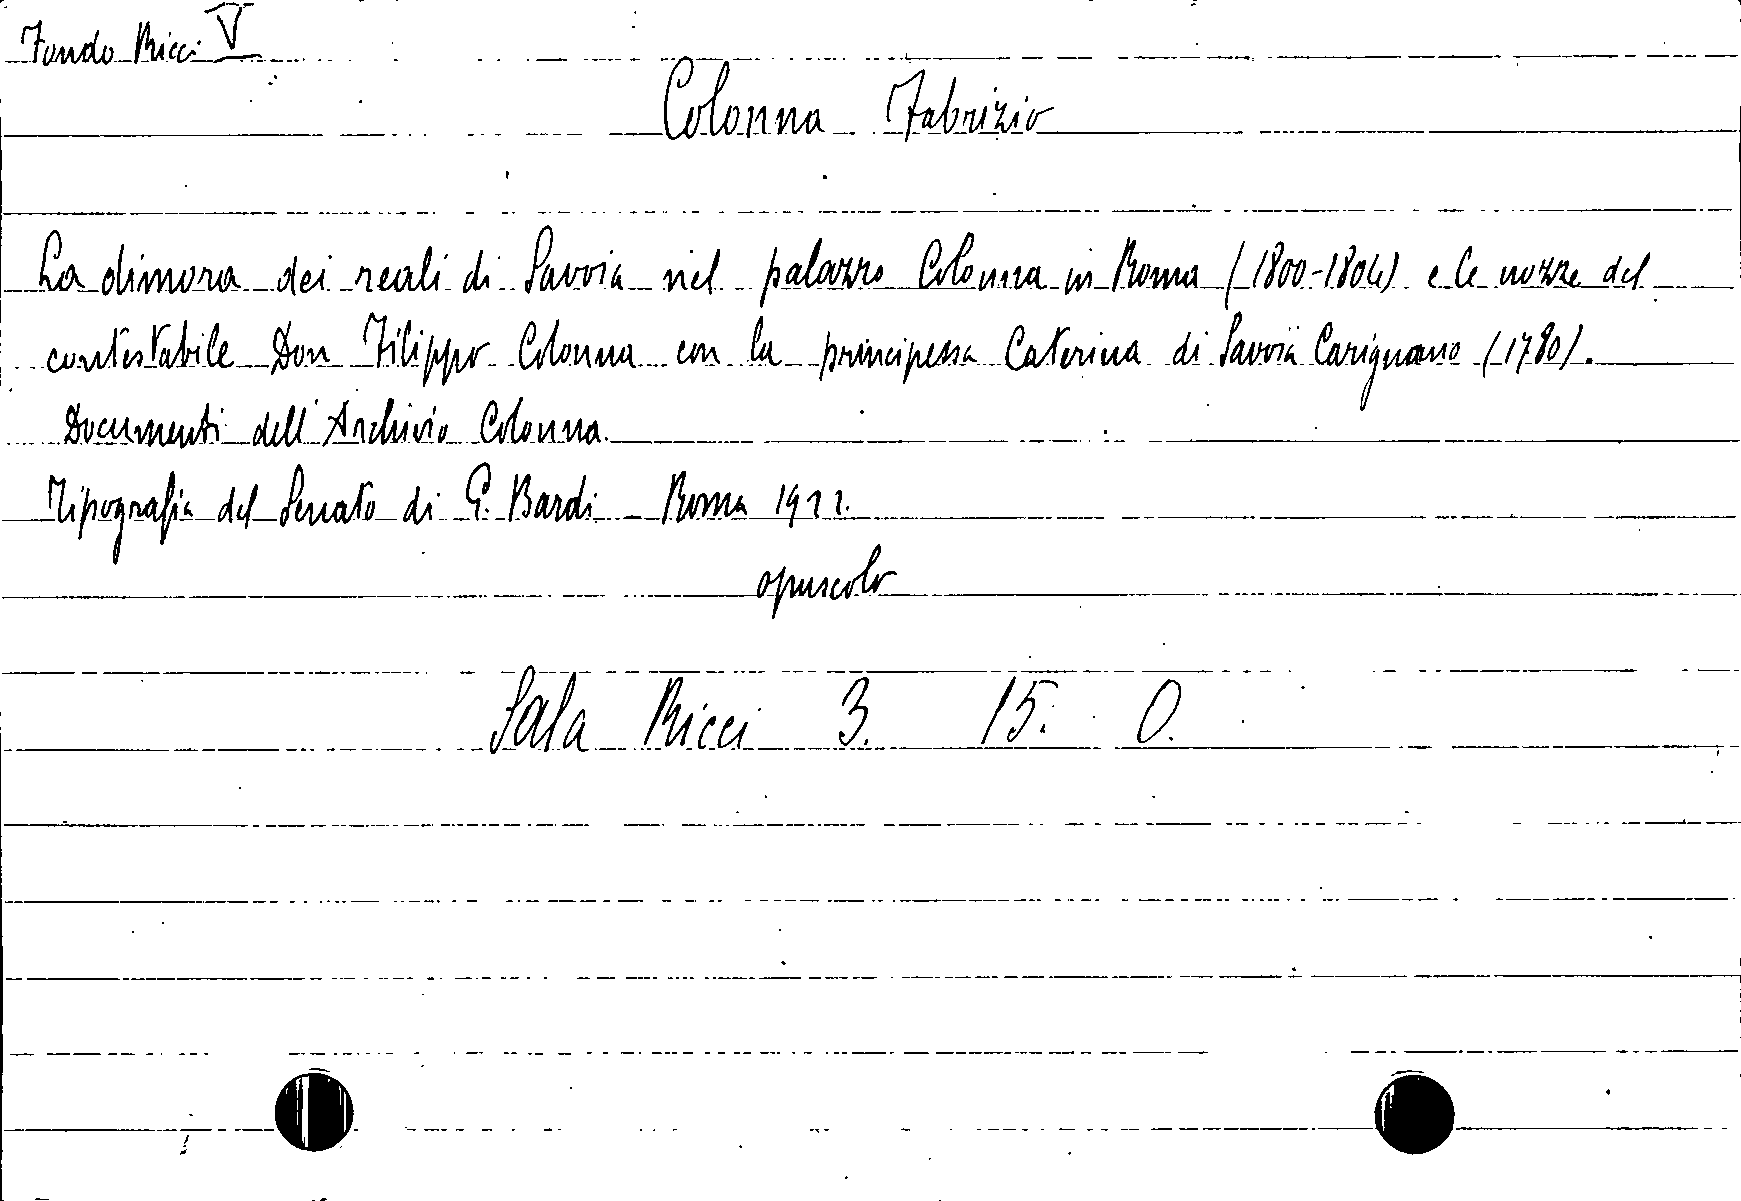 Fondo Ricci V
Colonna Fabrizio
La dimora dei reali di Savoia nel palazzo Colonna in Roma (1800-1804) e le nozze del
contestabile Don Filippo Colonna con la principessa Caterina di Savoia Carignano (1780).
Documenti dell'Archivio Colonna.
Tipografia del Senato di G. Bardi - Roma 1922.
opuscolo
Sala Ricci 3. 15. O.